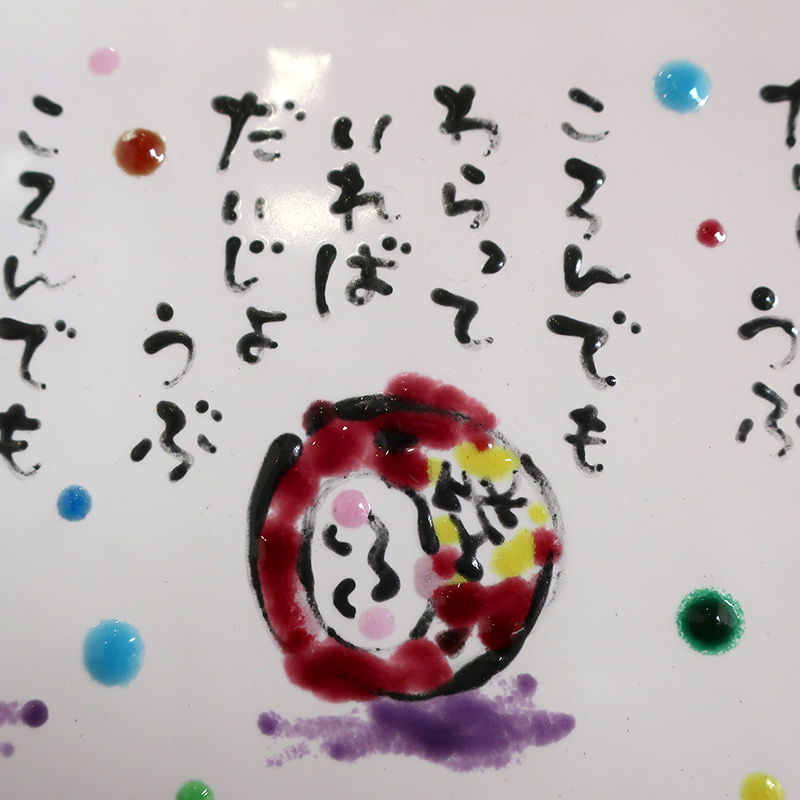 うぶ
ころんでも
わらって
いれば
だいじょ
うぶ
ころんでも